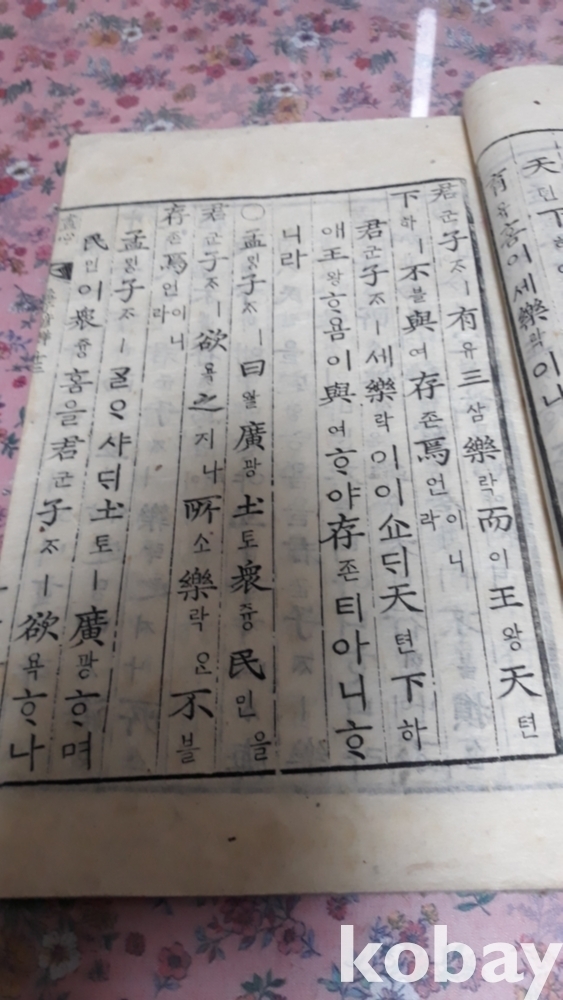 有유홈이세樂락이나
君군子ᄌᆞㅣ有유三삼樂락而이王왕天텬
下하ㅣ不블與여存존焉언이니라
君군子ᄌᆞㅣ세樂락이이쇼ᄃᆡ天텬下하
애王왕ᄒᆞ욤이與여ᄒᆞ야存존티아니ᄒᆞ
니라
○孟ᄆᆡᆼ子ᄌᆞㅣ曰왈廣광土토衆즁民민을
君군子ᄌᆞㅣ欲욕之지나所소樂락은不블
存존焉언이니라
孟ᄆᆡᆼ子ᄌᆞㅣᄀᆞᆯᄋᆞ샤ᄃᆡ土토ㅣ廣광ᄒᆞ며
民민이衆즁홈을君군子ᄌᆞㅣ欲욕ᄒᆞ나
kobay